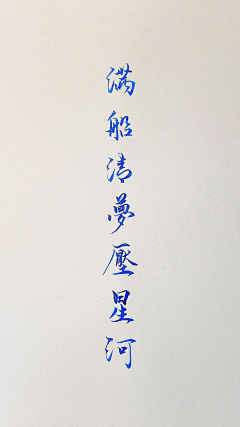 满船清夢壓星河